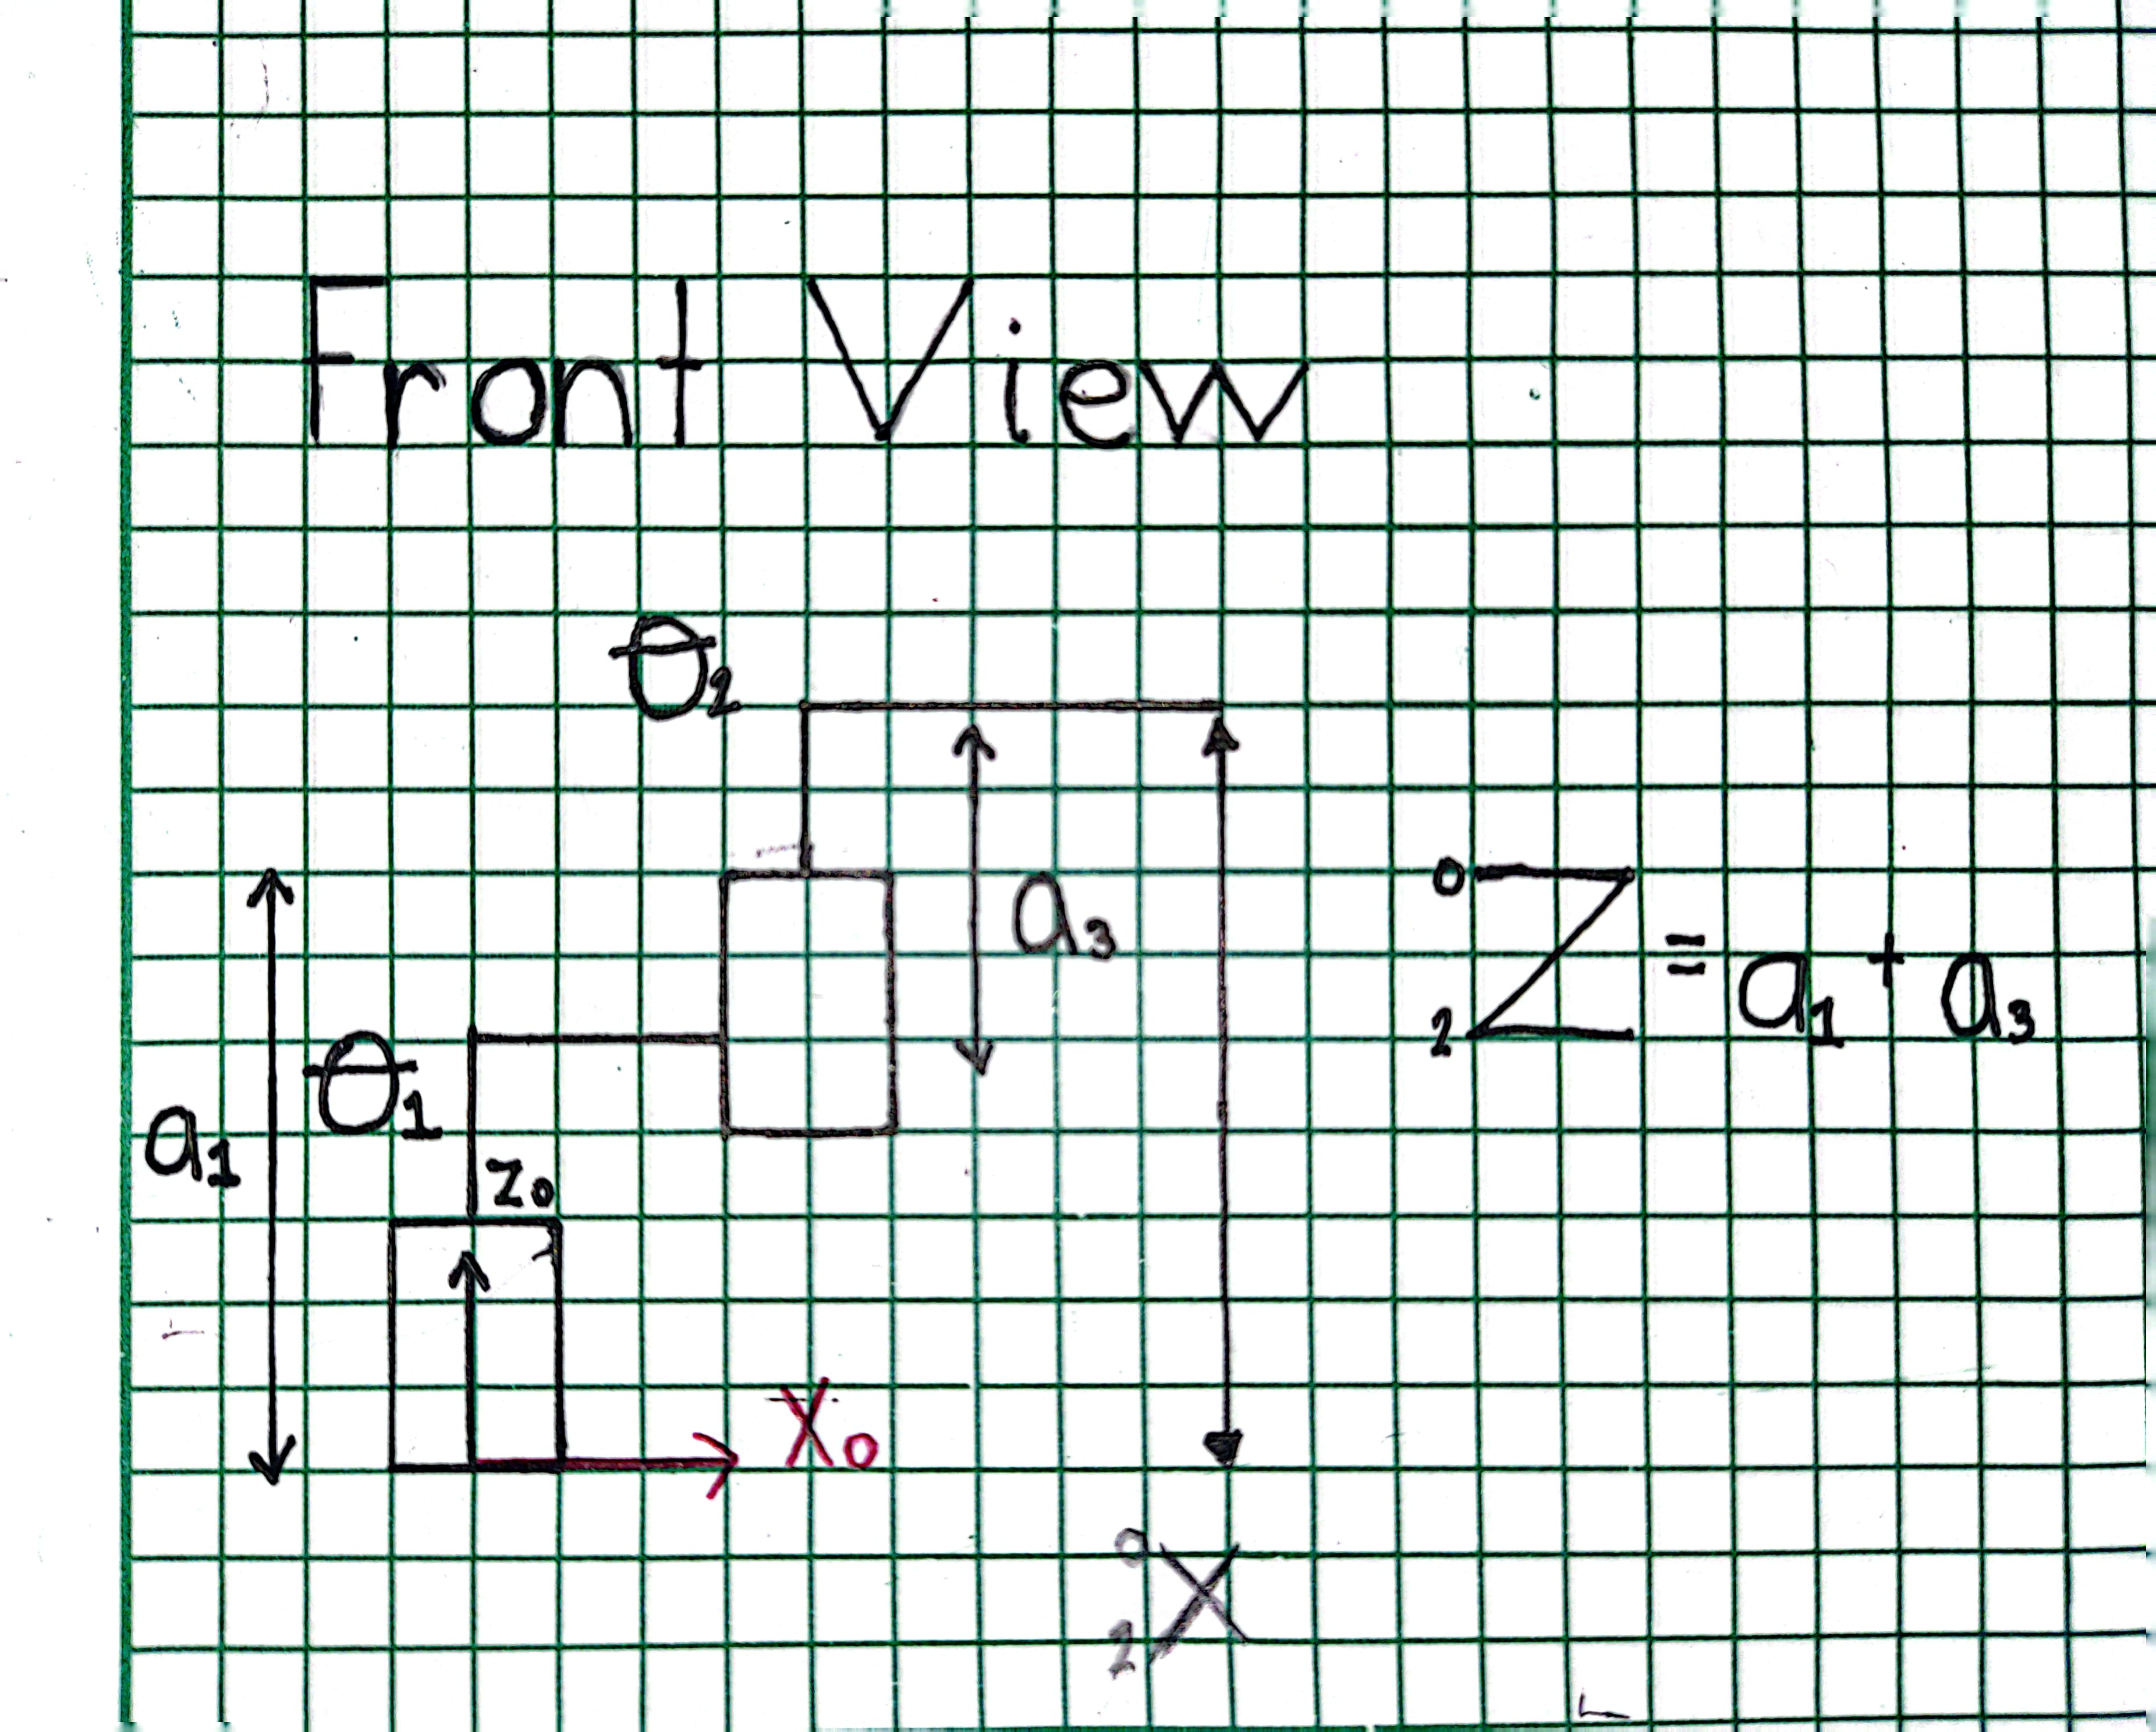 Front View
θ₂
a₃
⁰₂Z = a₁ + a₃
θ₁
a₁
z₀
X₀
⁰₂X